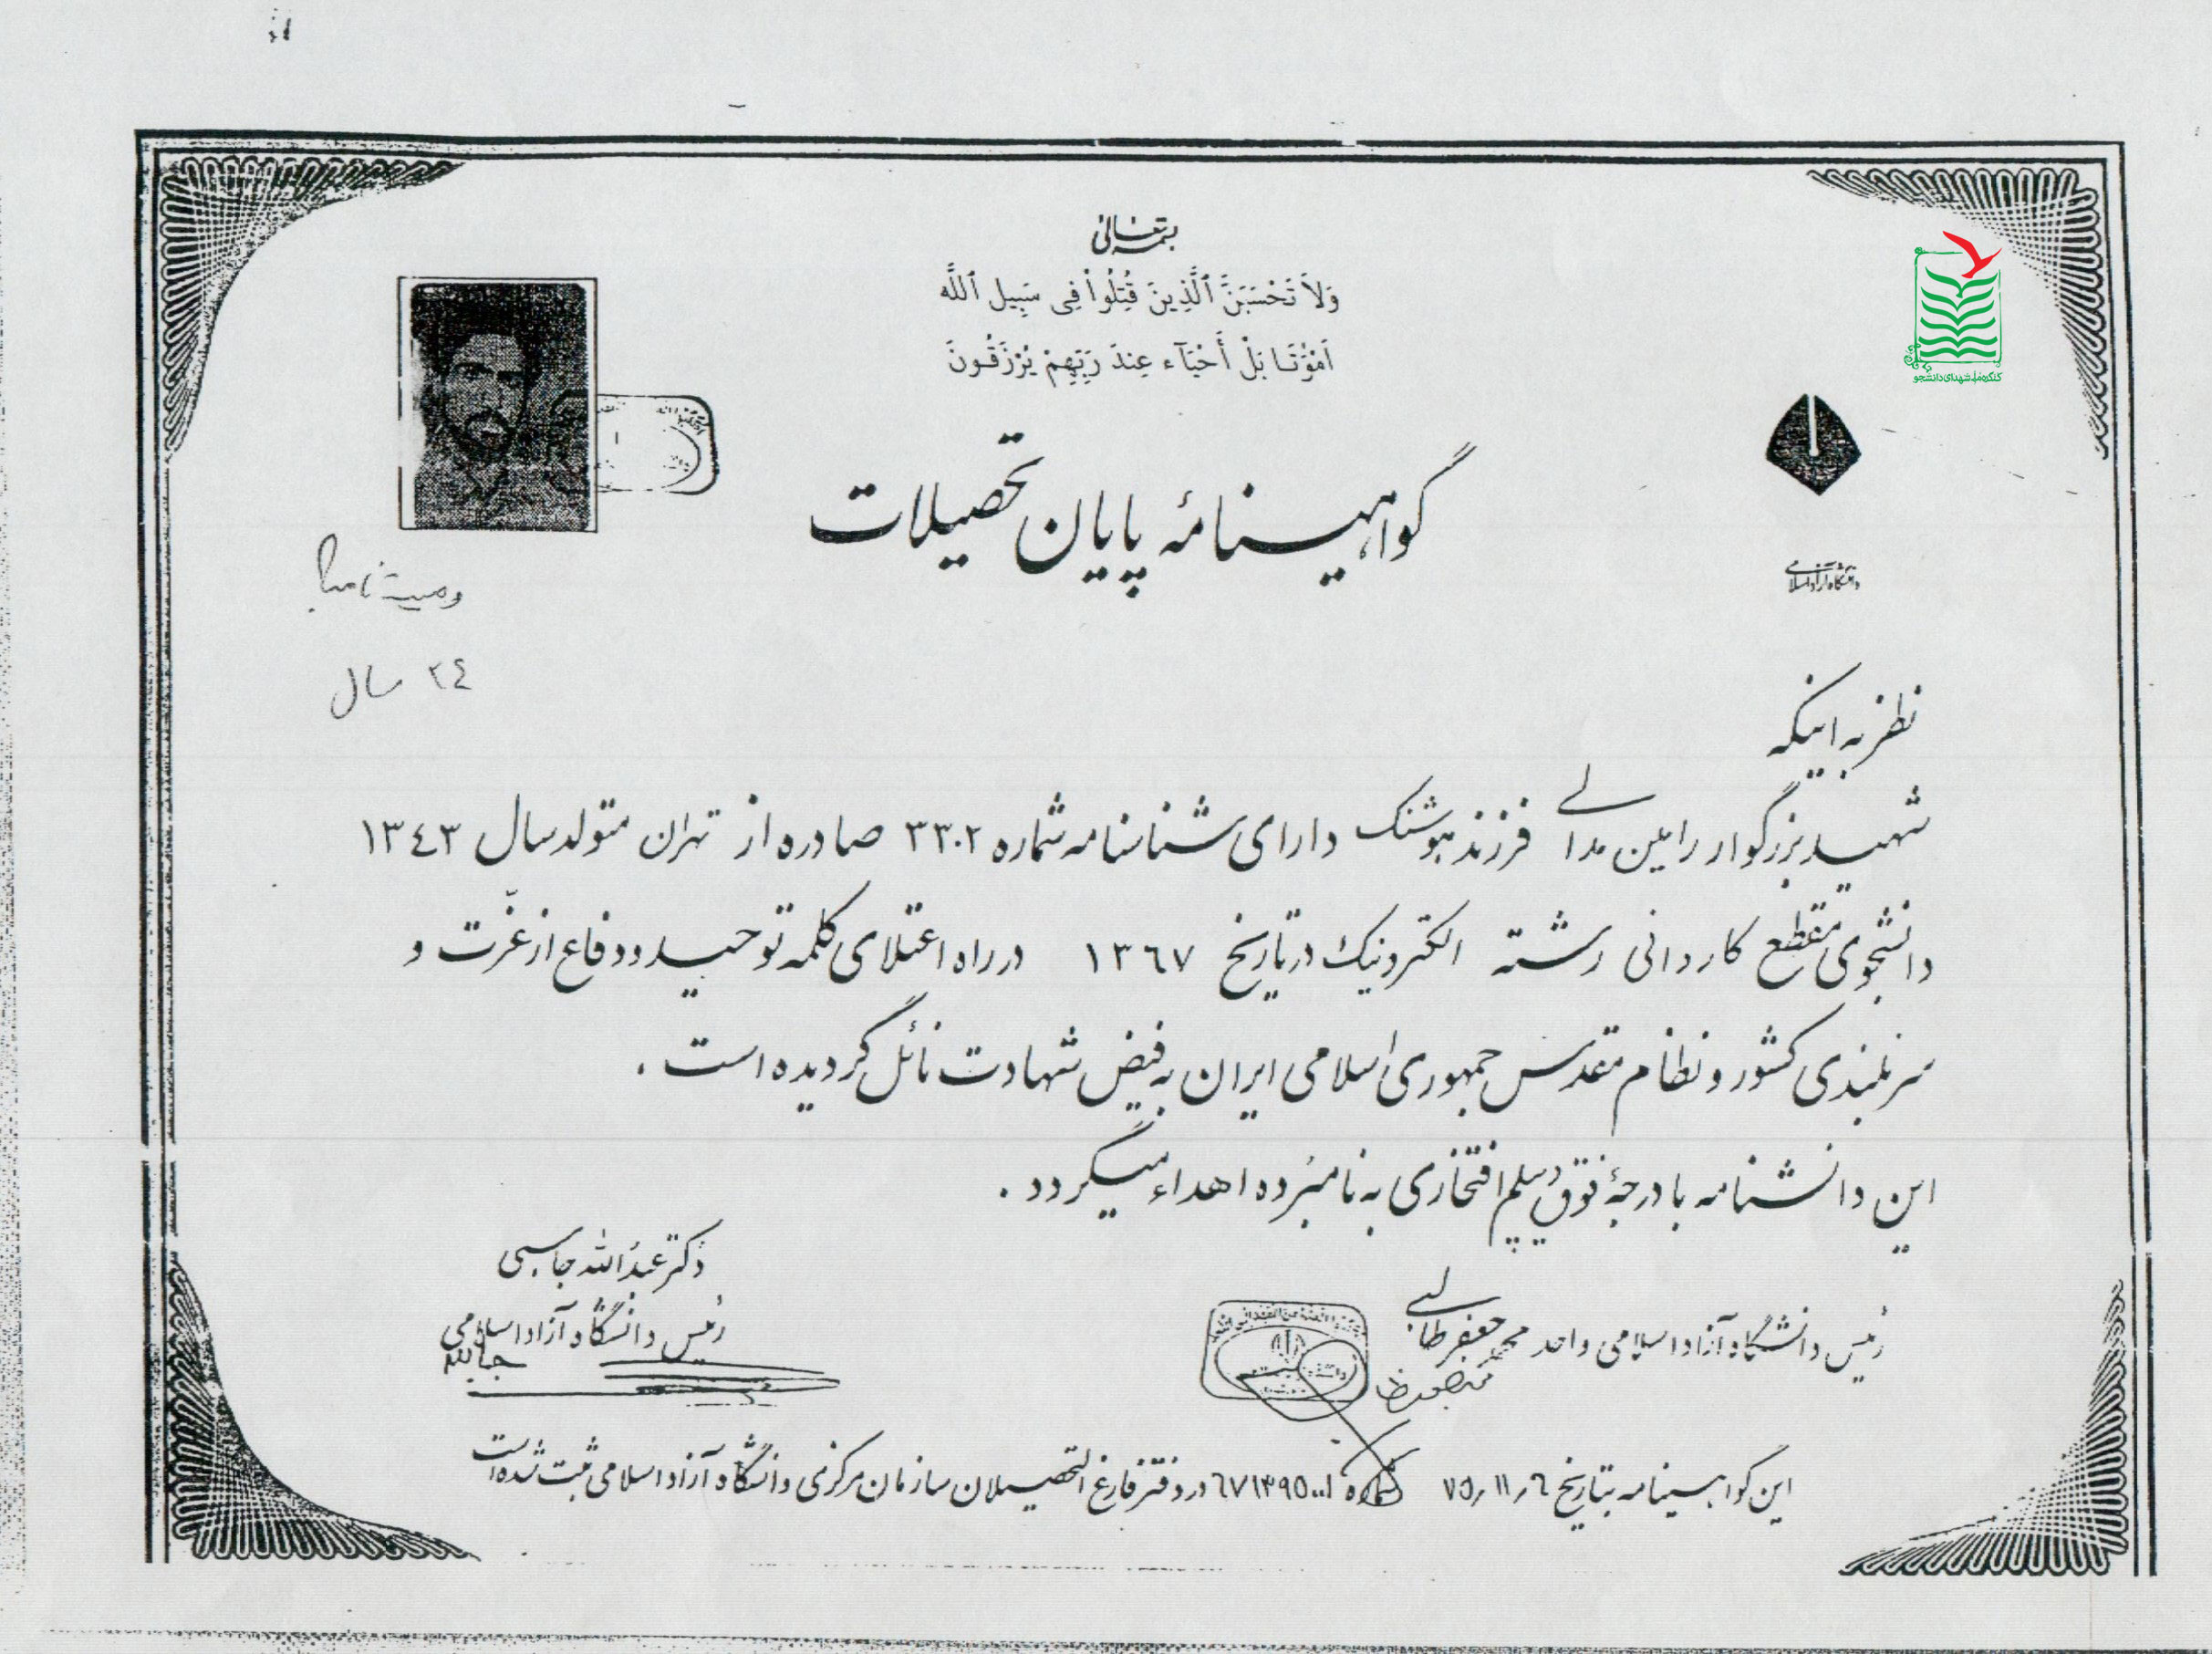 بسمه تعالی
وَلاَ تَحْسَبَنَّ ٱلَّذِينَ قُتِلُواْ فِي سَبِيلِ ٱللَّه
اَمْوَٰتَا بَلْ أَحْيَآء عِندَ رَبِّهِمْ يُرْزَقُونَ
کنگره ملی شهدای دانشجو
گواهینامهٔ پایان تحصیلات
دانشگاه آزاد اسلامی
وصیتنامه
٢٤ سال
نظر به اینکه
شهید بزرگوار رامین مدالی فرزند هوشنگ دارای شناسنامه شماره ٣٣٠٢ صادره از تهران متولد سال ١٣٤٣
دانشجوی مقطع کاردانی رشته الکترونیک در تاریخ ١٣٦٧ در راه اعتلای کلمه توحید و دفاع از عزّت و
سربلندی کشور و نظام مقدس جمهوری اسلامی ایران به فیض شهادت نائل گردیده است .
این دانشنامه با درجهٔ فوق دیپلم افتخاری به نامبرده اهداء میگردد .
دکتر عبدالله جاسبی
رئیس دانشگاه آزاد اسلامی
رئیس دانشگاه آزاد اسلامی واحد محمد جعفر طالبی
این گواهینامه بتاریخ ٧٥,١١,٦ شماره ٦٧١٣٩٥٠٠١ در دفتر فارغ التحصیلان سازمان مرکزی دانشگاه آزاد اسلامی ثبت شده است